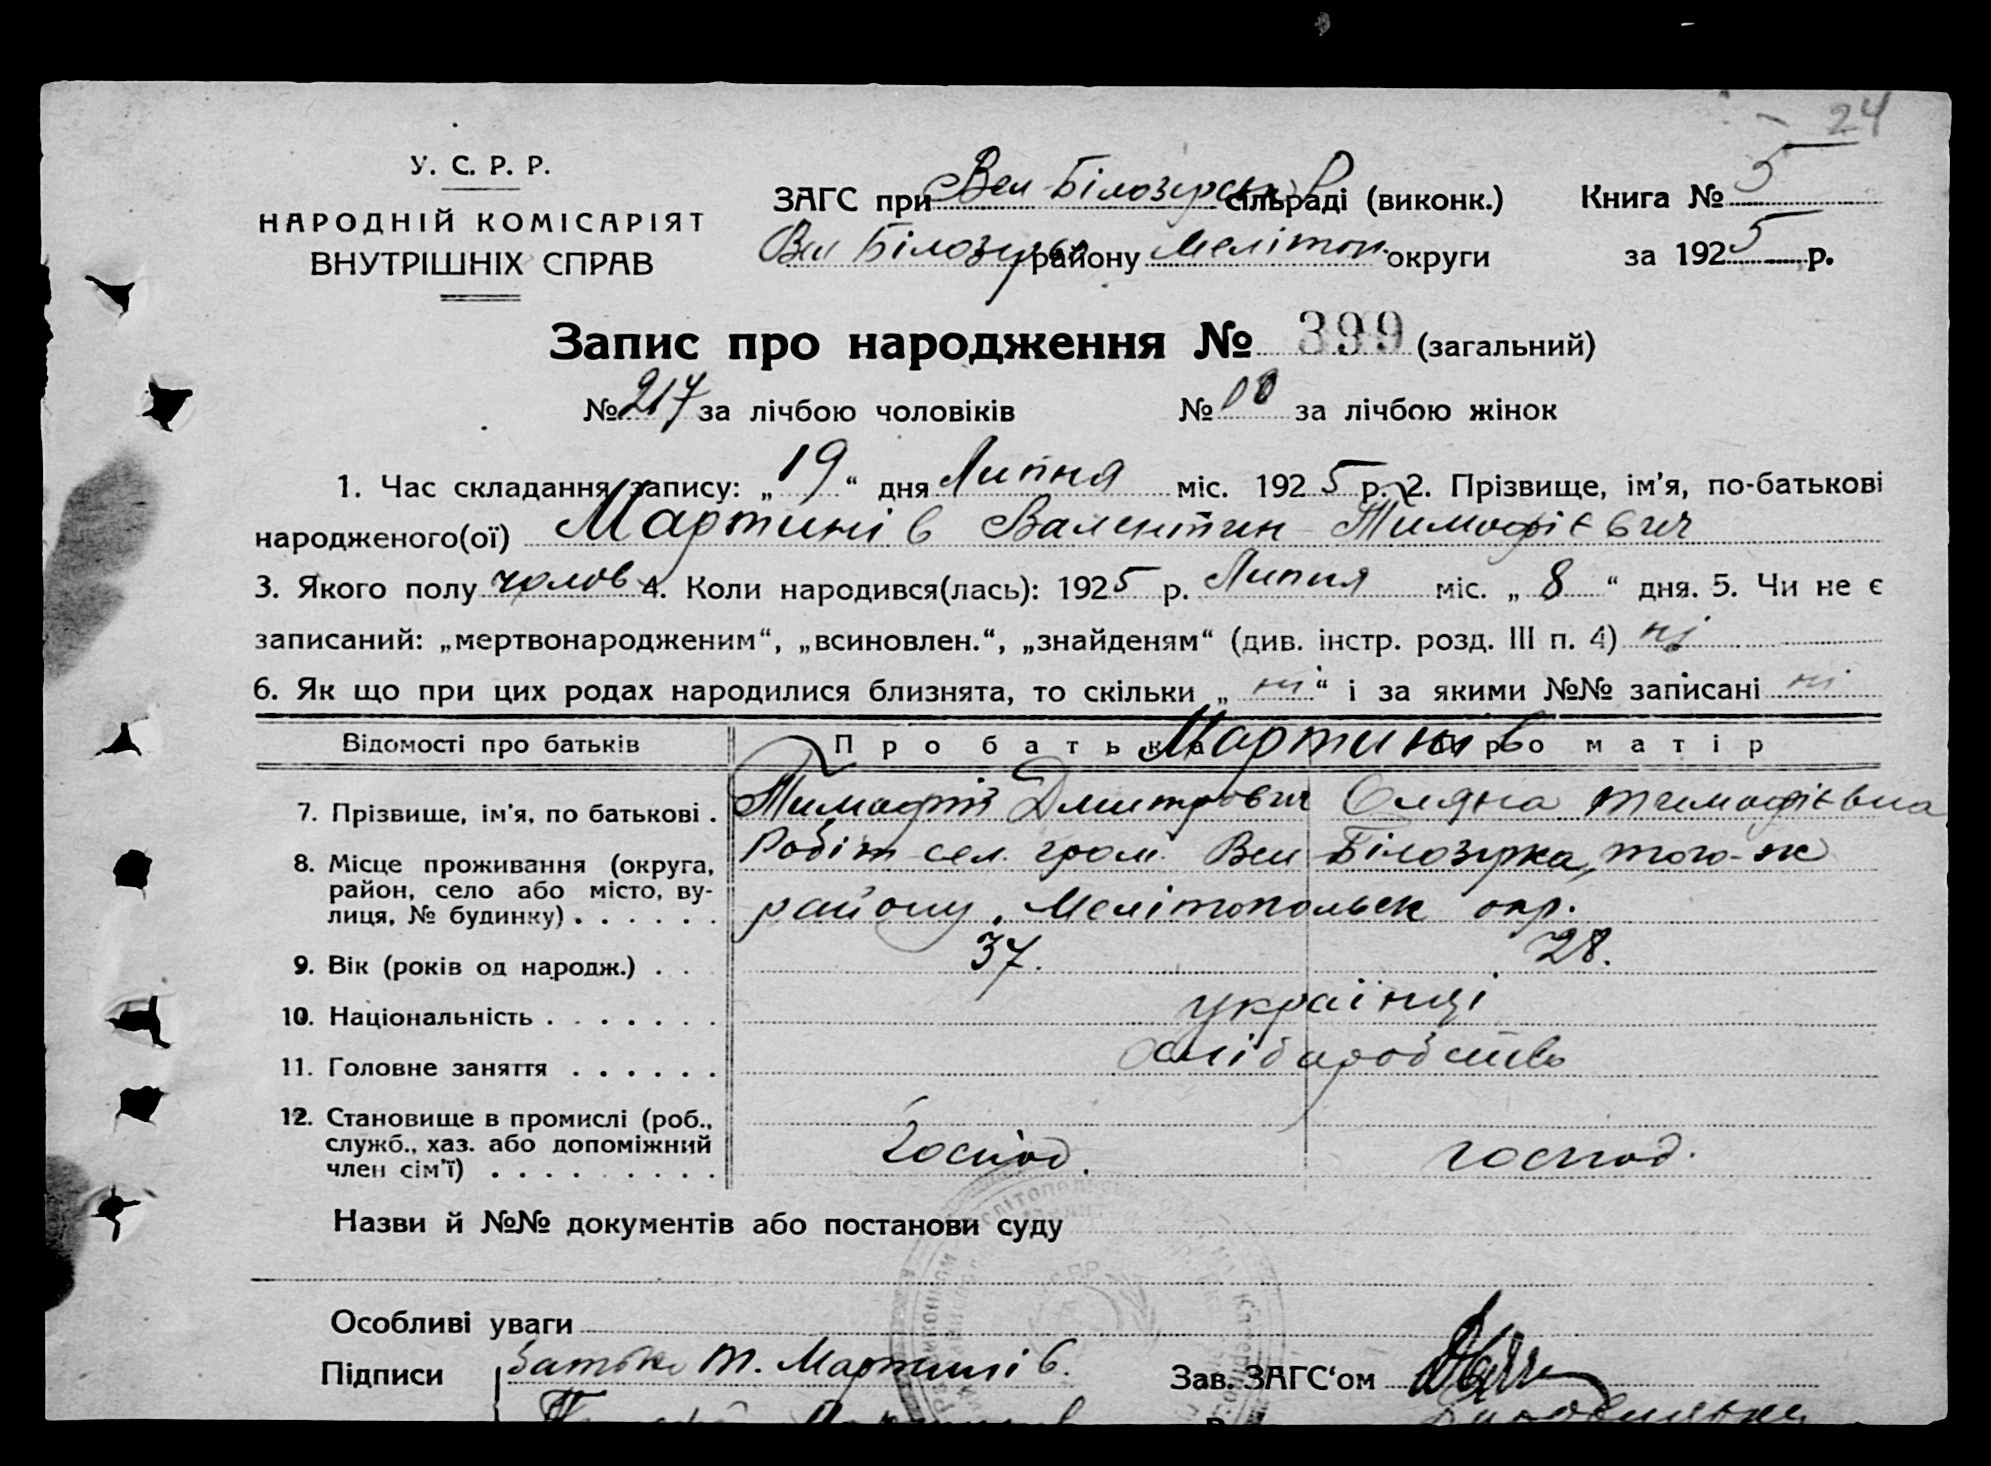 24
У. С. Р. Р.
НАРОДНІЙ КОМІСАРІЯТ
ВНУТРІШНІХ СПРАВ
ЗАГС при Вел Білозирськ Р сільраді (виконк.)
Вел Білозирс району Меліпоп округи
Книга № 5
за 1925 р.
Запис про народження № 399 (загальний)
№ 217 за лічбою чоловіків № за лічбою жінок
1. Час складання запису: „19“ дня Липня міс. 1925 р. 2. Прізвище, ім'я, по-батькові
народженого(ої) Мартинів Валентин Тимофієвич
3. Якого полу чолов 4. Коли народився(лась): 1925 р. Липня міс. „8“ дня. 5. Чи не є
записаний: „мертвонародженим“, „всиновлен.“, „знайденям“ (див. інстр. розд. III п. 4) ні
6. Як що при цих родах народилися близнята, то скільки „ні“ і за якими №№ записані ні
Відомості про батьків Про батька Мартинів Про матір
7. Прізвище, ім'я, по батькові . Тимофій Дмитрович Оляна Тимофієвна
8. Місце проживання (округа,
район, село або місто, ву-
лиця, № будинку) . . . . . .
Робіт сел. гром. Вел Білозирка, того-ж
району, Мелітопольск окр.
9. Вік (років од народж.) . . 37. 28.
10. Національність . . . . . . . українці
11. Головне заняття . . . . . . хлібаробство
12. Становище в промислі (роб.,
служб., хаз. або допоміжний
член сім'ї) . . . . . . . . .
господ. господ.
Назви й №№ документів або постанови суду
Особливі уваги
Підписи Батько Т. Мартинів. Зав. ЗАГС'ом